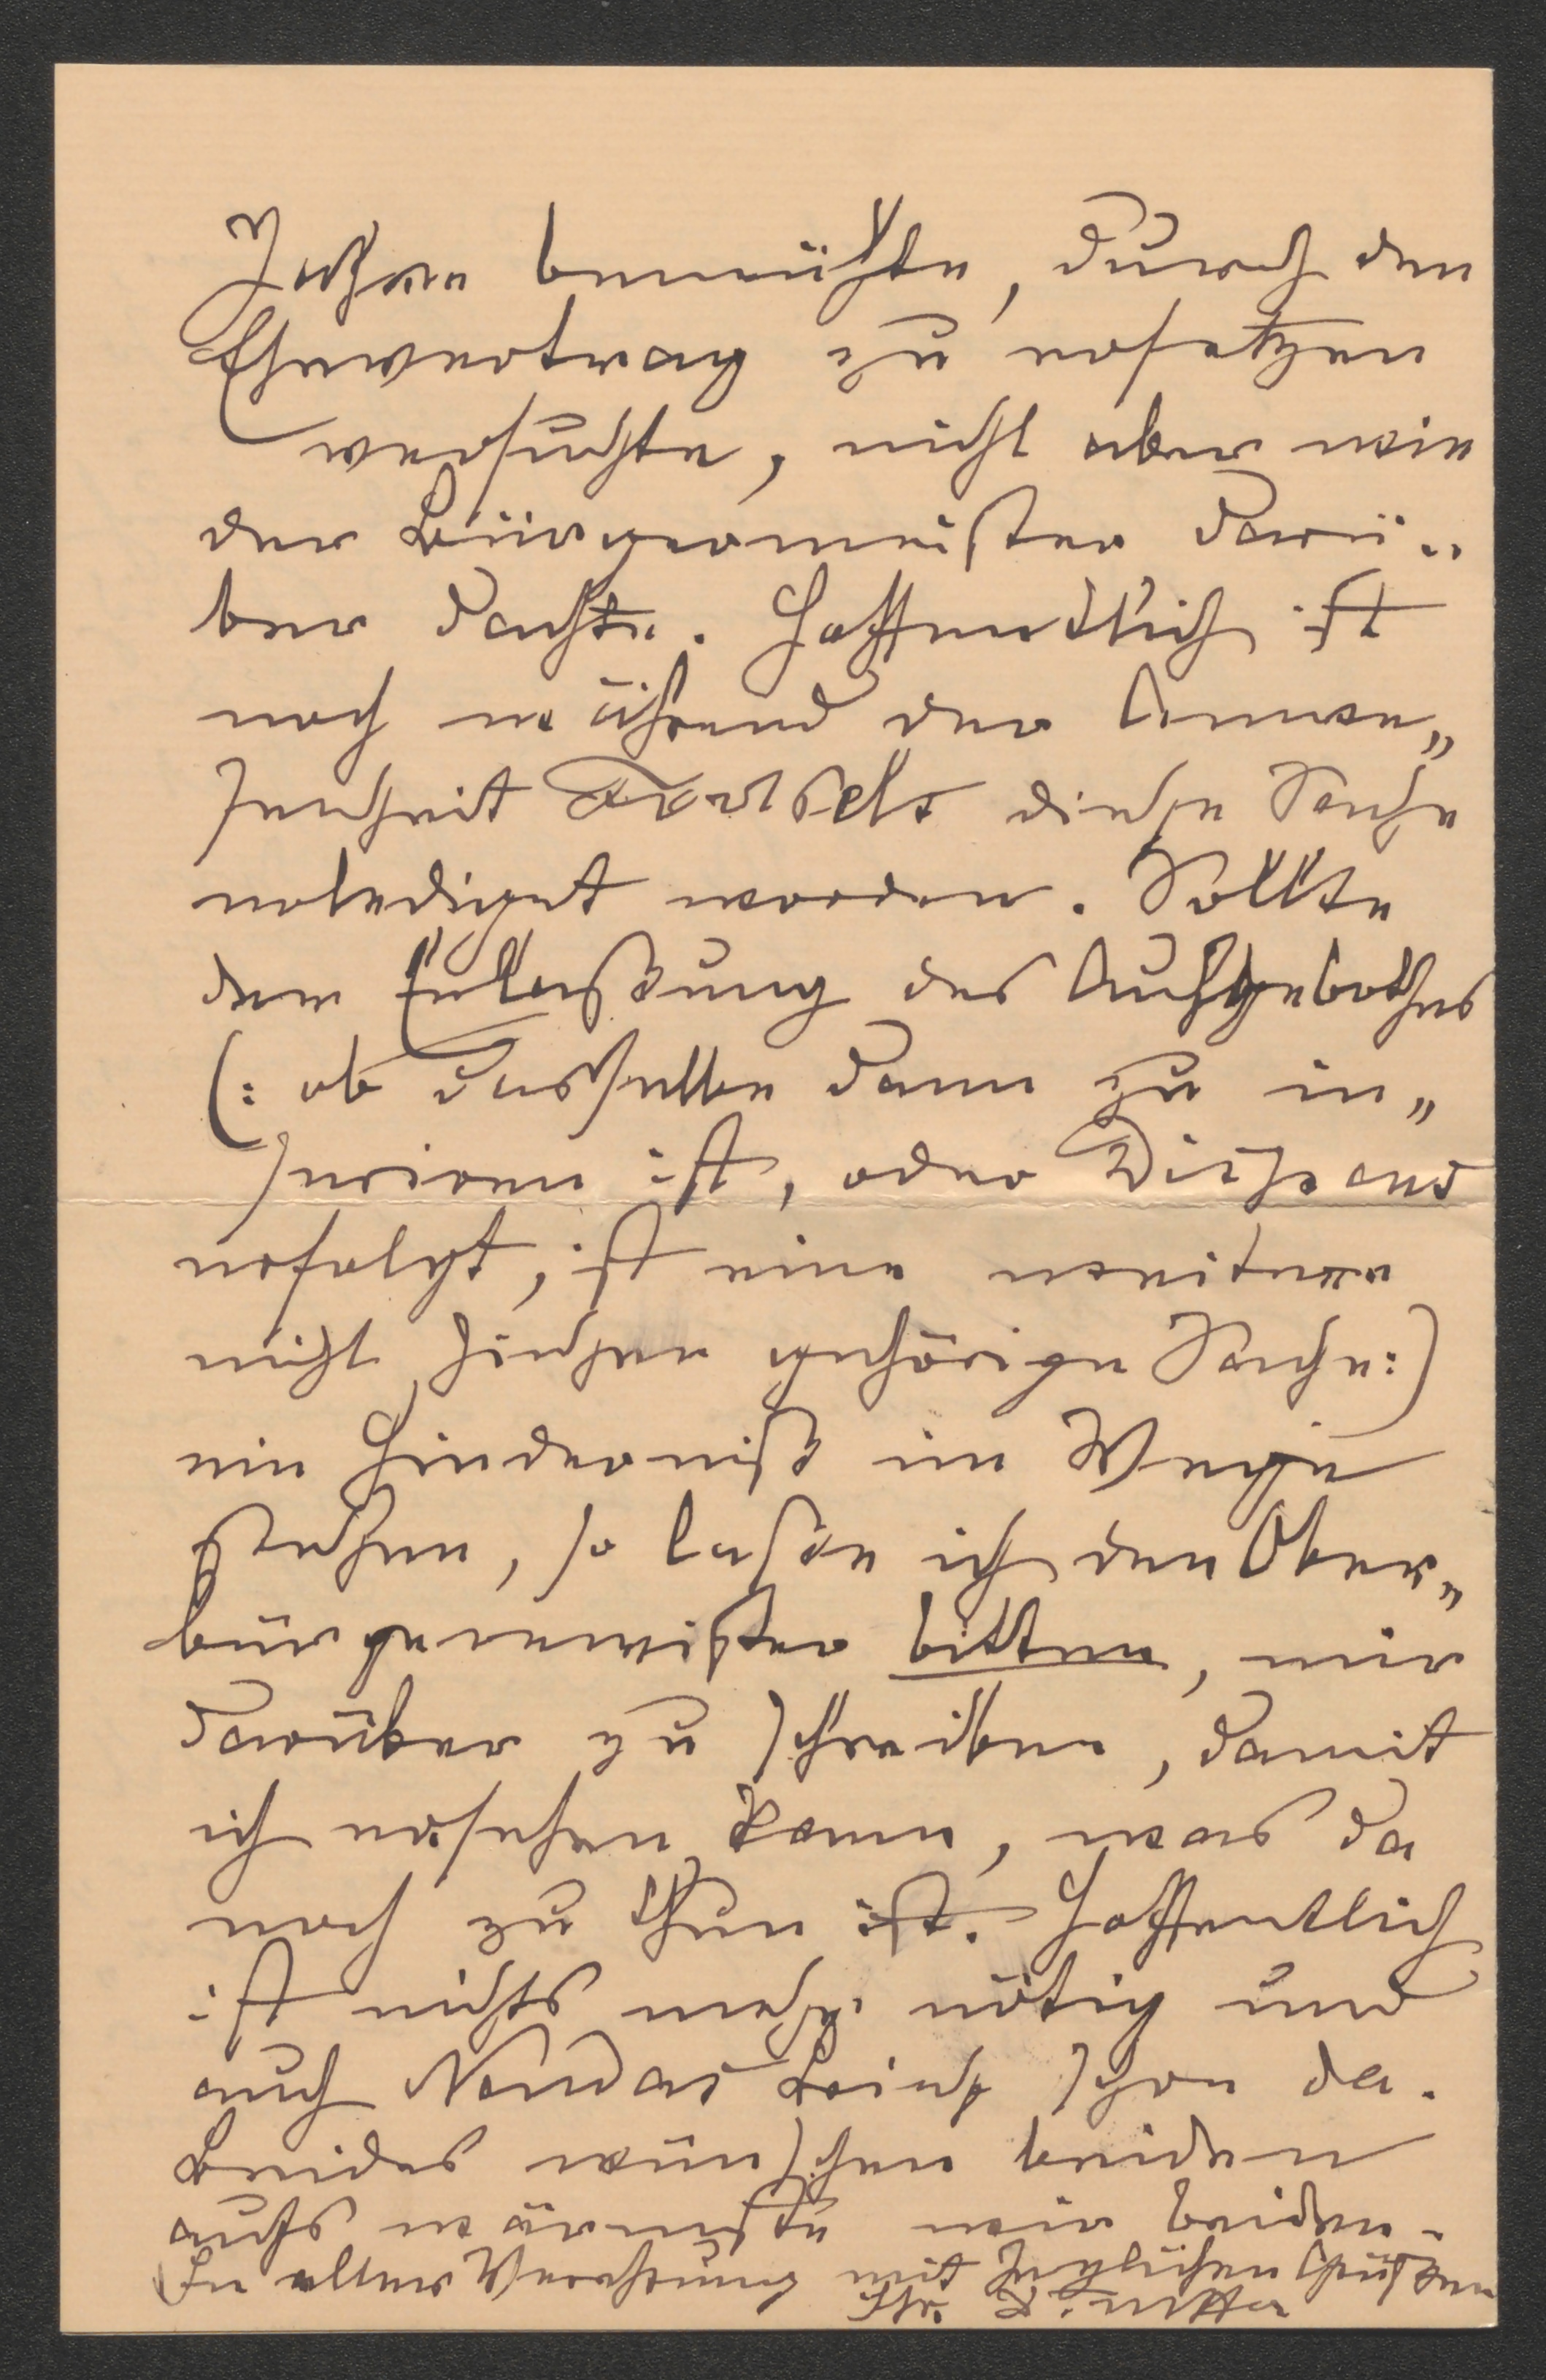 Jahren bemühte, durch den
Ehevertrag zu ersetzen
versuchte, nicht aber wie
der Bürgermeister darü„
ber dachte. Hoffendlich ist
noch während der Anwe„
senheit diese Sache
erledigt worden. Sollte
der Erlaßung des Aufgebothes
(: ob dasselbe dann zu in„
seriren ist, oder Dispens
erfolgt, ist eine weitere
nicht hieher gehörige Sache:)
ein Hinderniß im Wege
stehen, so laße ich den Ober„
bürgermeister bitten, mir
darüber zu schreiben, damit
ich ersehen kann, was da
noch zu thun ist. Hoffentlich
ist nichts mehr nötig und
auch Brief schon da.
Beides wünschen beiden
aufs wärmste wir beiden.
In alter Verehrung mit herzlichen Grüßen
Ihr